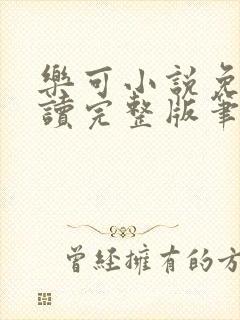 樂可小說免
讀完整版筆
曾經擁有的方